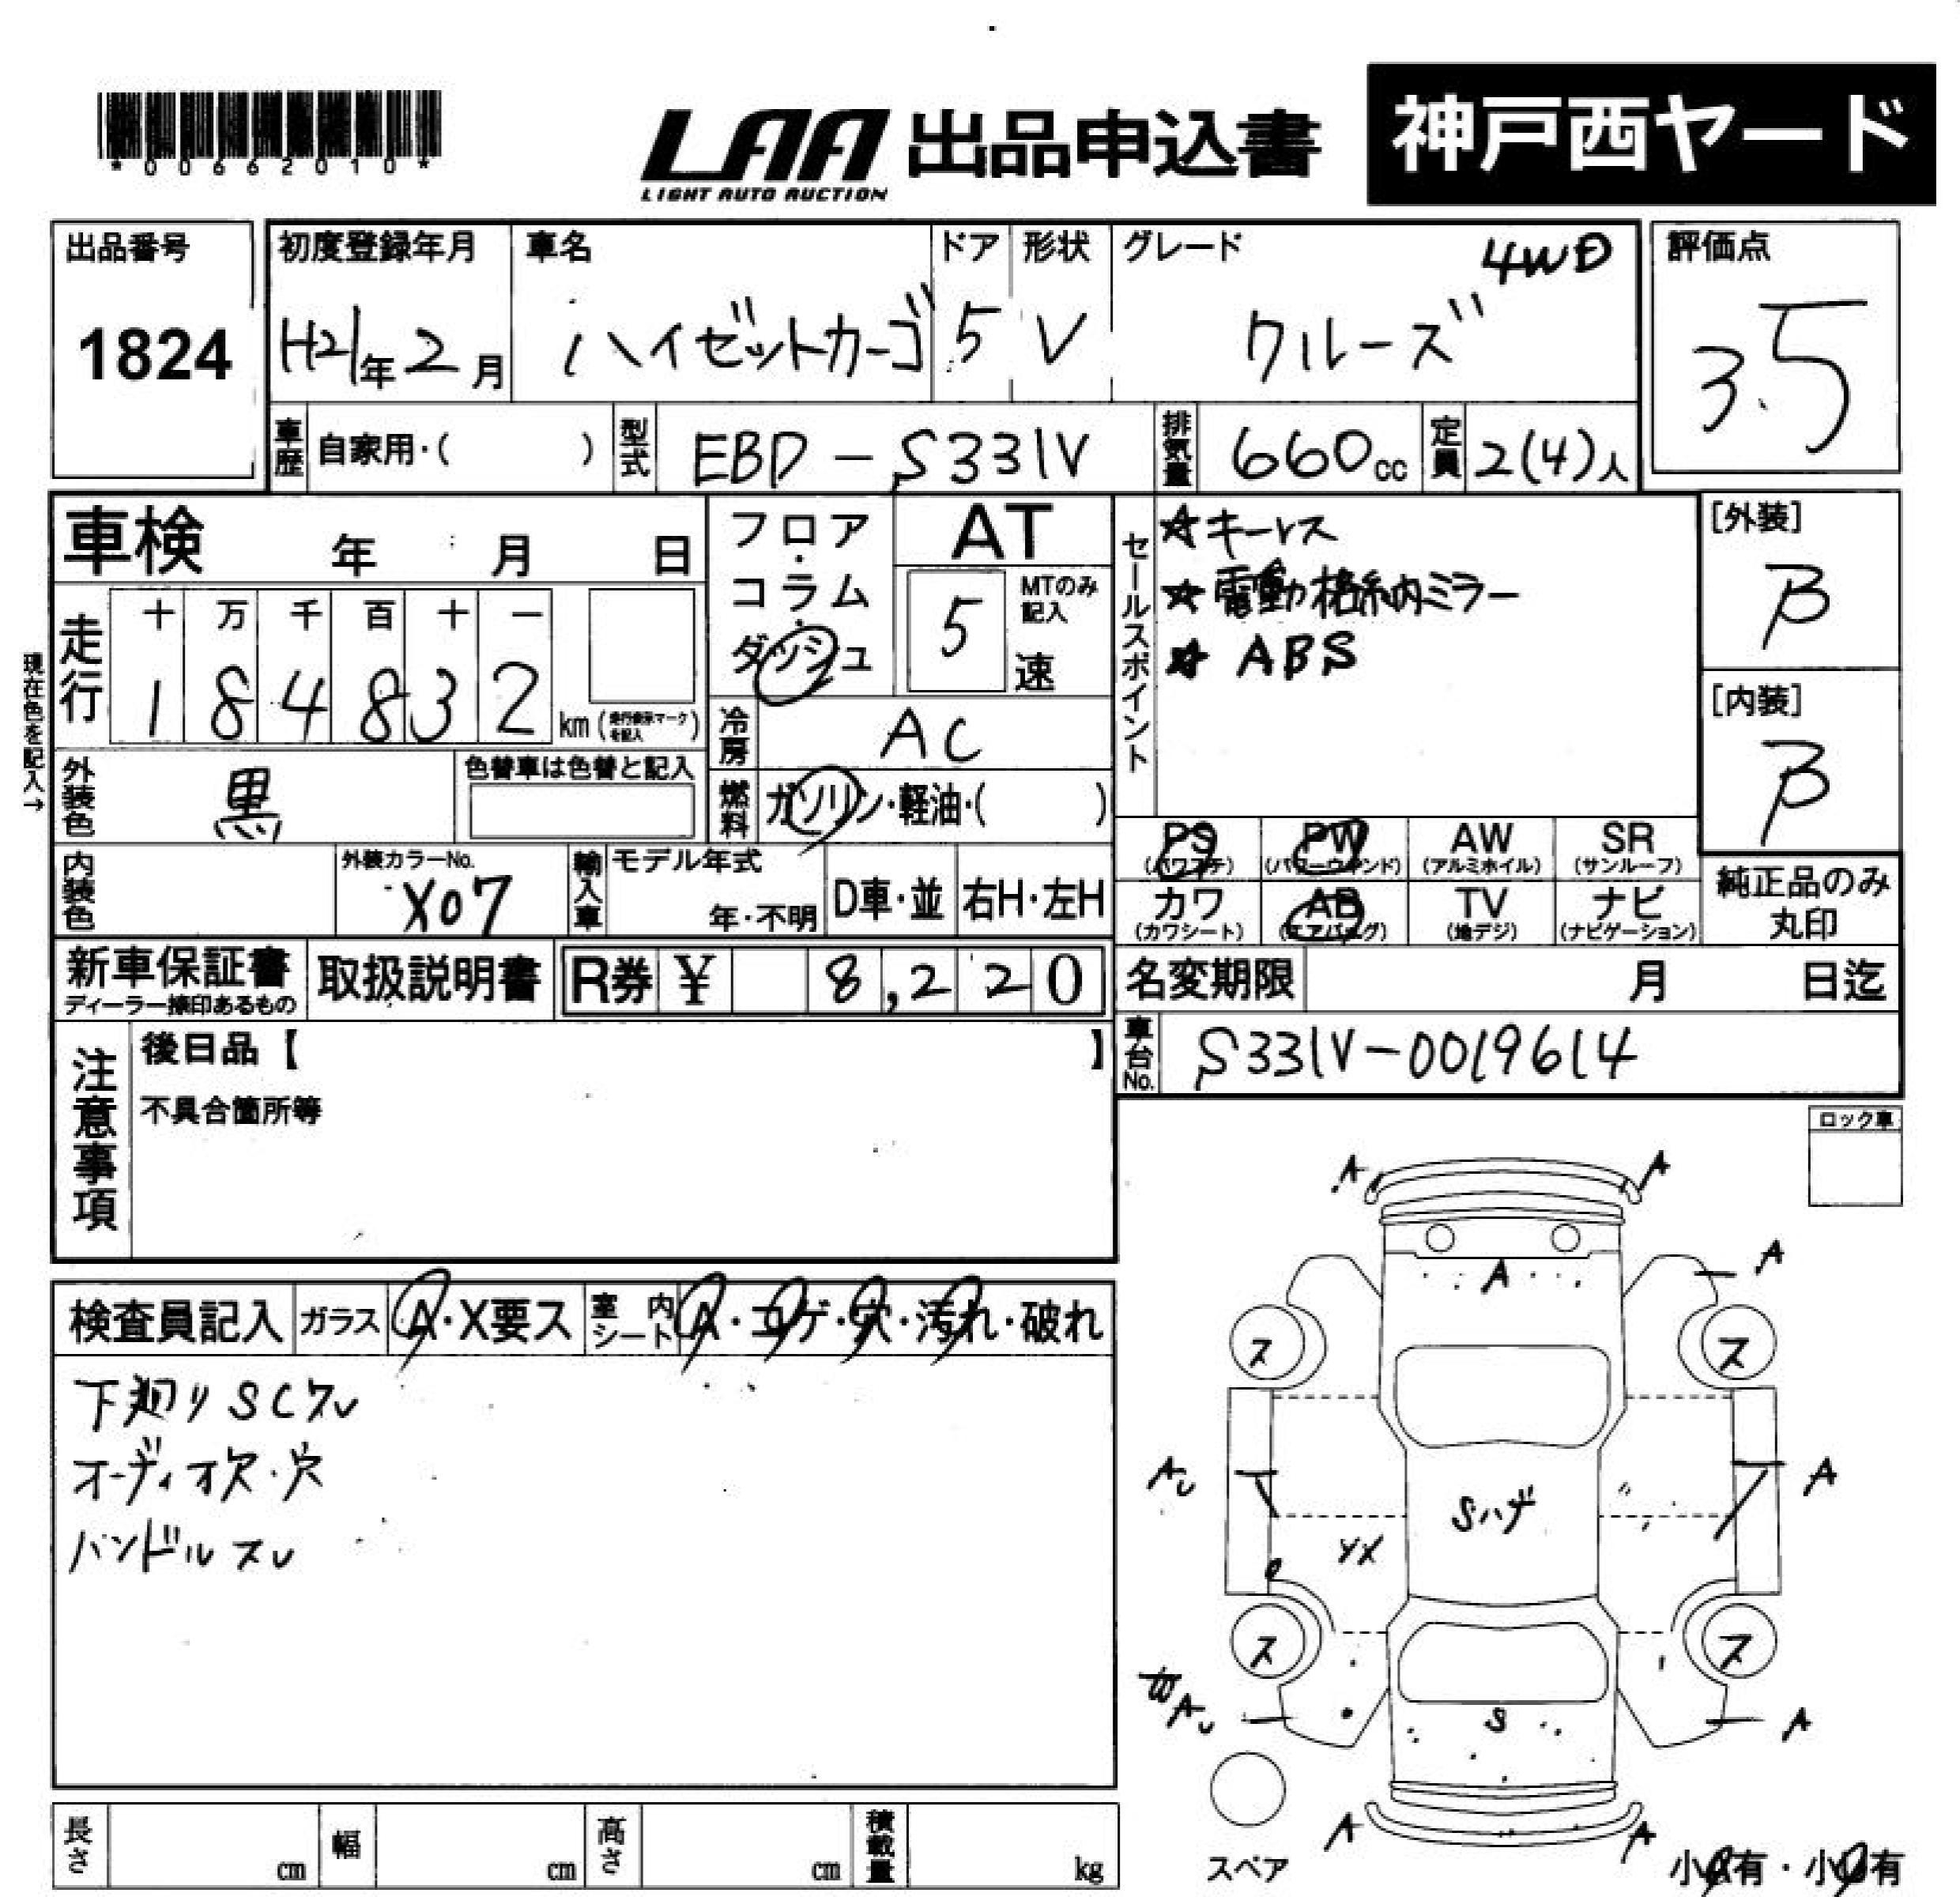 *00662010*
LAA 出品申込書 神戸西ヤード
LIGHT AUTO AUCTION
出品番号 初度登録年月 車名 ドア 形状 グレード 4WD 評価点
1824 H21年2月 ハイゼットカーゴ 5 V クルーズ 3.5
車歴 自家用・( ) 型式 EBD-S331V 排気量 660cc 定員 2(4)人
車検 年 月 日 フロア・コラム・ダッシュ AT セールスポイント ☆キーレス [外装]
5 MTのみ記入 速 ☆電動格納ミラー B
走行 十 万 千 百 十 一 ☆ABS
184832 km(走行表示マークを記入) 冷房 AC [内装]
現在色を記入→
外装色 黒 色替車は色替と記入 燃料 ガソリン・軽油・( ) B
PS AW SR PW
(パワステ) (パワーウィンド) (アルミホイル) (サンルーフ)
内装色 外装カラーNo. X07 輸入車 モデル年式 年・不明 D車・並 右H・左H
カワ AB TV ナビ 純正品のみ丸印
(カワシート) (エアバッグ) (地デジ) (ナビゲーション)
新車保証書 取扱説明書 R券 ¥ 8,220 名変期限 月 日迄
ディーラー捺印あるもの
車台No. S331V-0019614
注意事項 後日品【 】
不具合箇所等
ロック車
検査員記入 ガラス A・X要ス 室内シート A・コゲ・穴・汚れ・破れ
下廻りSCスレ
オーディオ欠・穴
ハンドルスレ
A A
A A
ス ス
A A
Sハゲ
ス ス
A S A
A A
スペア
小A有・小U有
長さ cm 幅 cm 高さ cm 積載量 kg